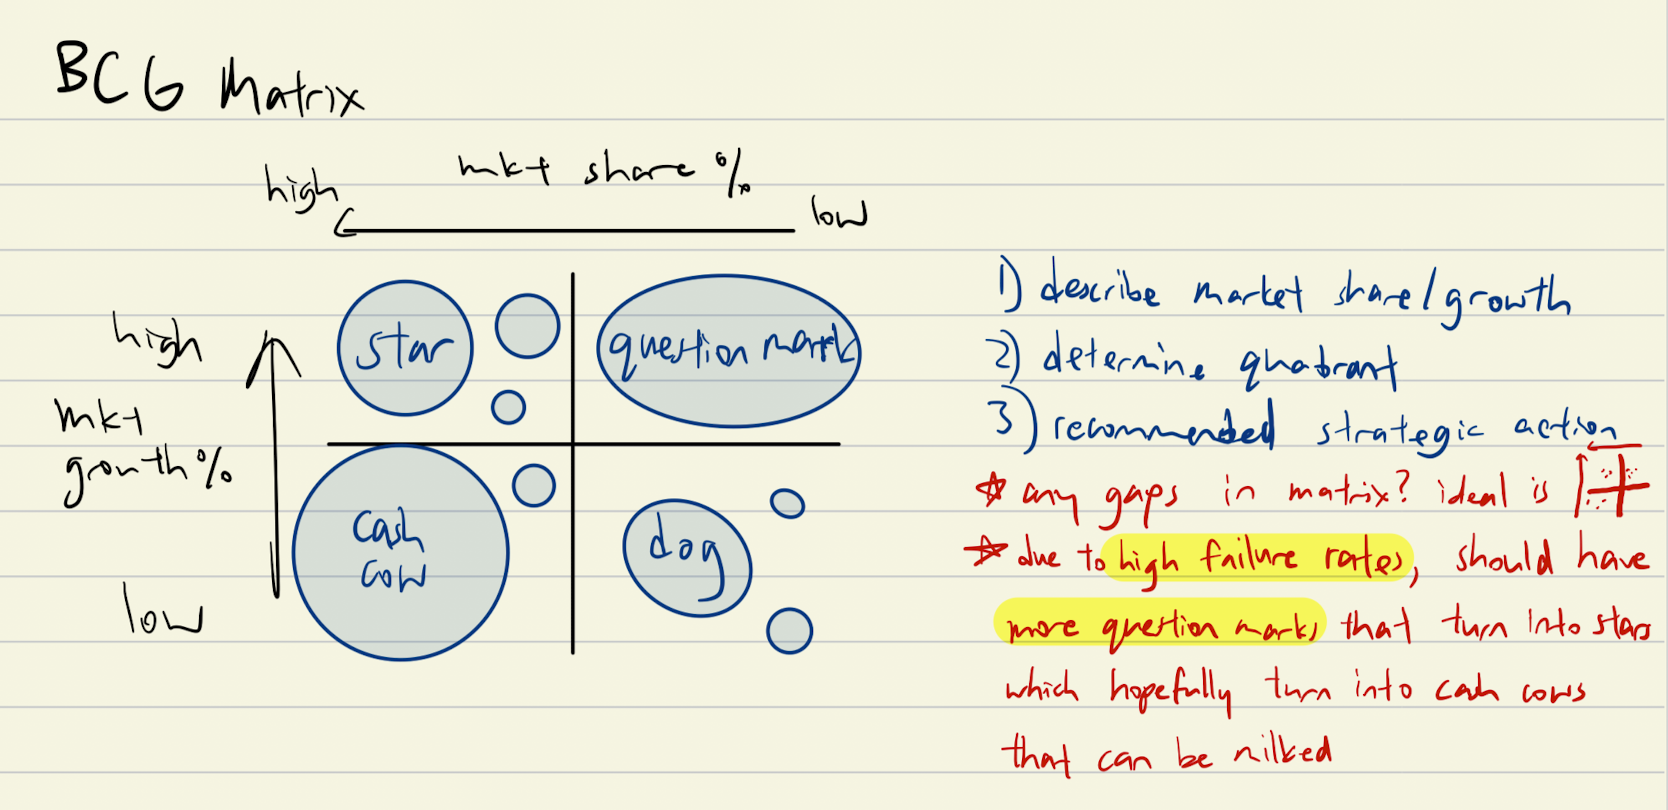 BCG Matrix
mkt share %
high
low
high
mkt
growth %
low
star
question mark
cash
cow
dog
1) describe market share/growth
2) determine quabrant
3) recommended strategic action
any gaps in matrix? ideal is
due to high failure rates, should have
more question marks that turn into stars
which hopefully turn into cash cows
that can be milked